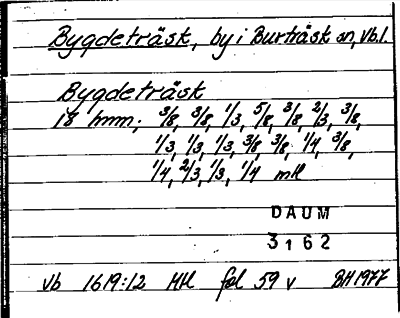 Bygdeträsk, by i Burträsk sn, Vb.l.
Bygdeträsk
18 hmm; 3/8, 3/8, 1/3, 5/8, 3/8, 2/3, 3/8,
1/3, 1/3, 1/3, 3/8 3/8, 1/4, 3/8,
1/4, 2/3, 1/3, 1/4 mtl
DAUM
3162
Vb 1619:12 Mtl fol 59 v BH 1977